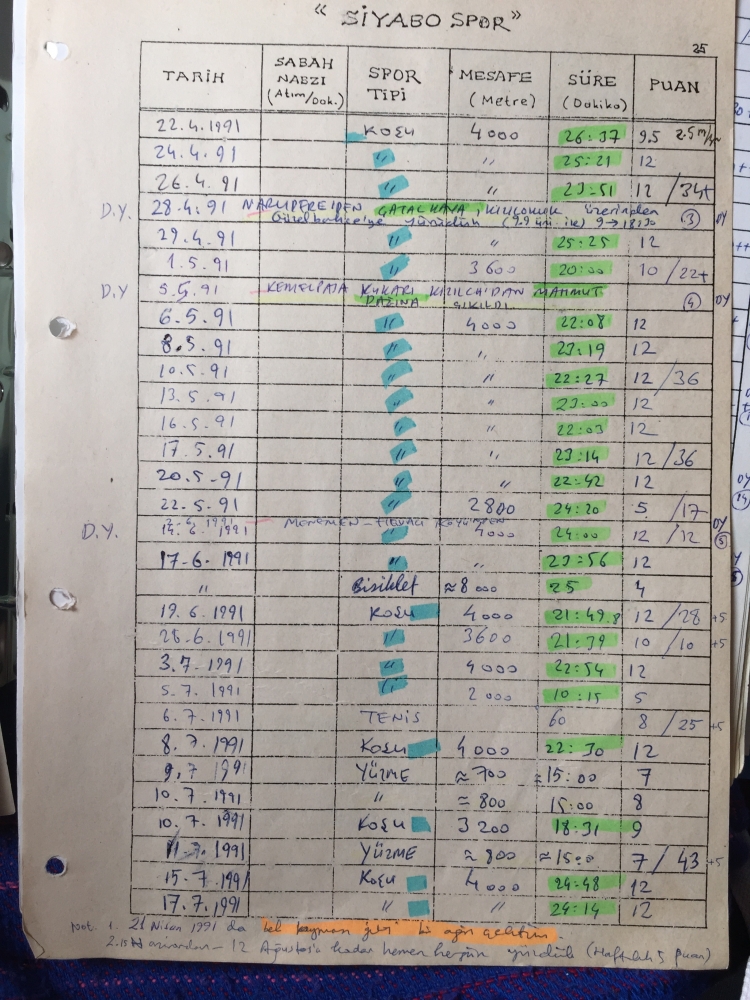 “ SİYABO SPOR ”
25
TARİH SABAH NABZI (Atım/Dak.) SPOR TİPİ MESAFE (Metre) SÜRE (Dakika) PUAN
22.4.1991 KOŞU 4000 26:37 9.5
24.4.91 〃 〃 25:21 12
26.4.91 〃 〃 23:51 12 /34+
D.Y. 28.4.91 NARLIDERE'DEN ÇATALKAYA, KIZILOLUK üzerinden (3) DY
Güzelbahçe'ye yürüdük
29.4.91 〃 〃 25:25 12
1.5.91 〃 3600 20:00 10 /22+
D.Y 5.5.91 KEMELPAŞA YUKARI KIZILCA'DAN MAHMUT (4) DY
DAĞINA ÇIKILDI
6.5.91 〃 4000 22:08 12
8.5.91 〃 〃 23:19 12
10.5.91 〃 〃 22:27 12 /36
13.5.91 〃 〃 23:00 12
16.5.91 〃 22:03 12
17.5.91 〃 〃 23:14 12 /36
20.5-91 〃 〃 22:42 12
22.5.91 〃 2800 24:20 5 /17
D.Y. MENEMEN - DY (5)
14.6.1991 〃 4000 24:00 12 /12
17-6.1991 〃 〃 23:56 12
〃 Bisiklet ≈8000 25 4
19.6.1991 KOŞU 4000 21:49.8 12 /28 +5
28-6.1991 〃 3600 21:39 10 /10 +5
3.7-1991 〃 4000 22:54 12
5.7.1991 〃 2000 10:15 5
6.7.1991 TENİS 60 8 /25 +5
8.7.1991 KOŞU 4000 22:30 12
9.7 1991 YÜZME ≈700 ≈15:00 7
10.7.1991 〃 ≈800 15:00 8
10.7.1991 KOŞU 3200 18:31 9
11.7.1991 YÜZME ≈800 ≈15:00 7 /43 +5
15.7.1991 KOŞU 4000 24:48 12
17.7.1991 〃 〃 24:14 12
Not. 1. 21 Nisan 1991 da bel bir ağrı
12 Ağustos'a kadar hemen hergün yürüdük (Haftalık 5 Puan)